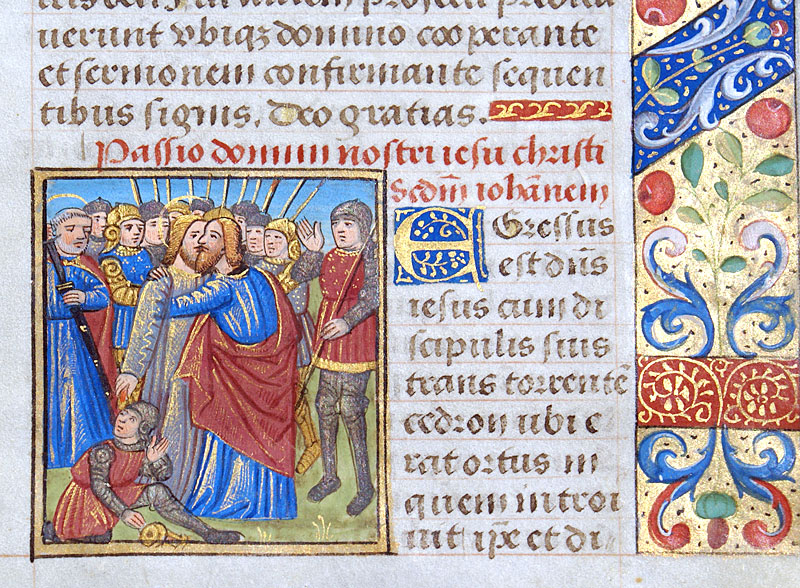 uerunt vbiqȝ domino cooperante
et sermonem confirmante sequen
tibus signis. Deo gratias.
Passio domini nostri iesu christi
Scdm̄ iohānem
Egressus
est dn̄s
iesus cum di
scipulis suis
trans torrentē
cedron ubi e
rat ortus in
quem introi
uit ip̄e et di-